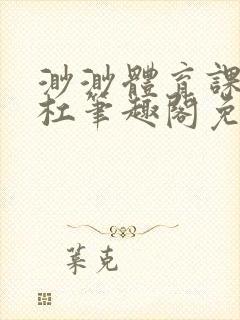 渺渺體育課
杜筆趣閣免
葉克